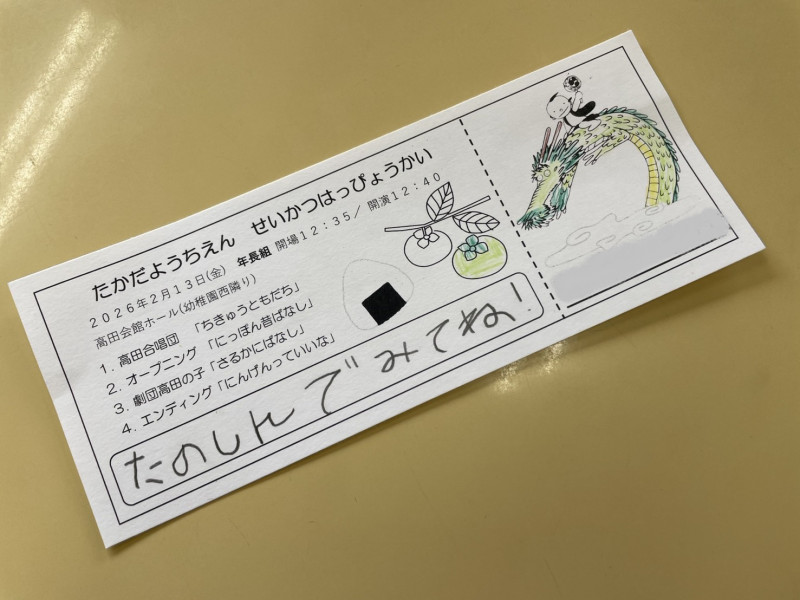 たかだようちえん　せいかつはっぴょうかい
２０２６年２月１３日(金)　年長組 開場１２：３５／ 開演１２：４０
高田会館ホール(幼稚園西隣り)
１．高田合唱団　「ちきゅうともだち」
２．オープニング　「にっぽん昔ばなし」
３．劇団高田の子「さるかにばなし」
４．エンティング「にんげんっていいな」
たのしんでみてね!